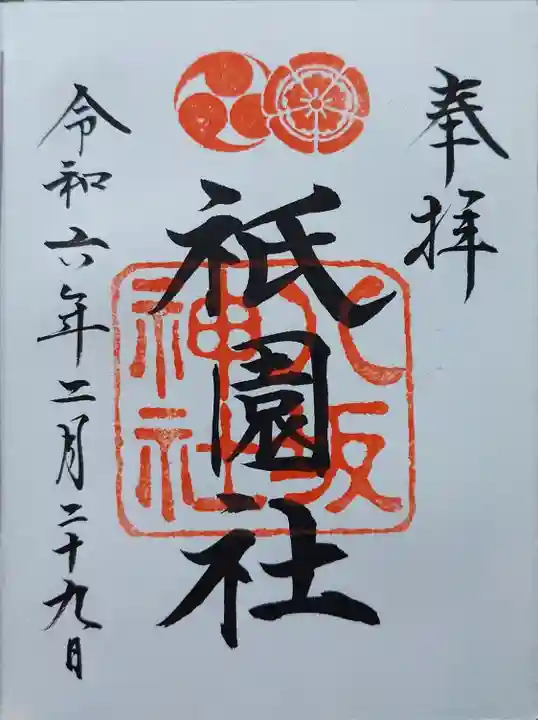 奉拝
八坂
神社
祇園社
令和六年二月二十九日